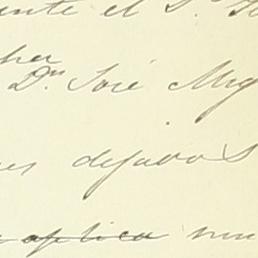 ente el Sr.
her
Dn. José Mig
es dejado S
aplica nu